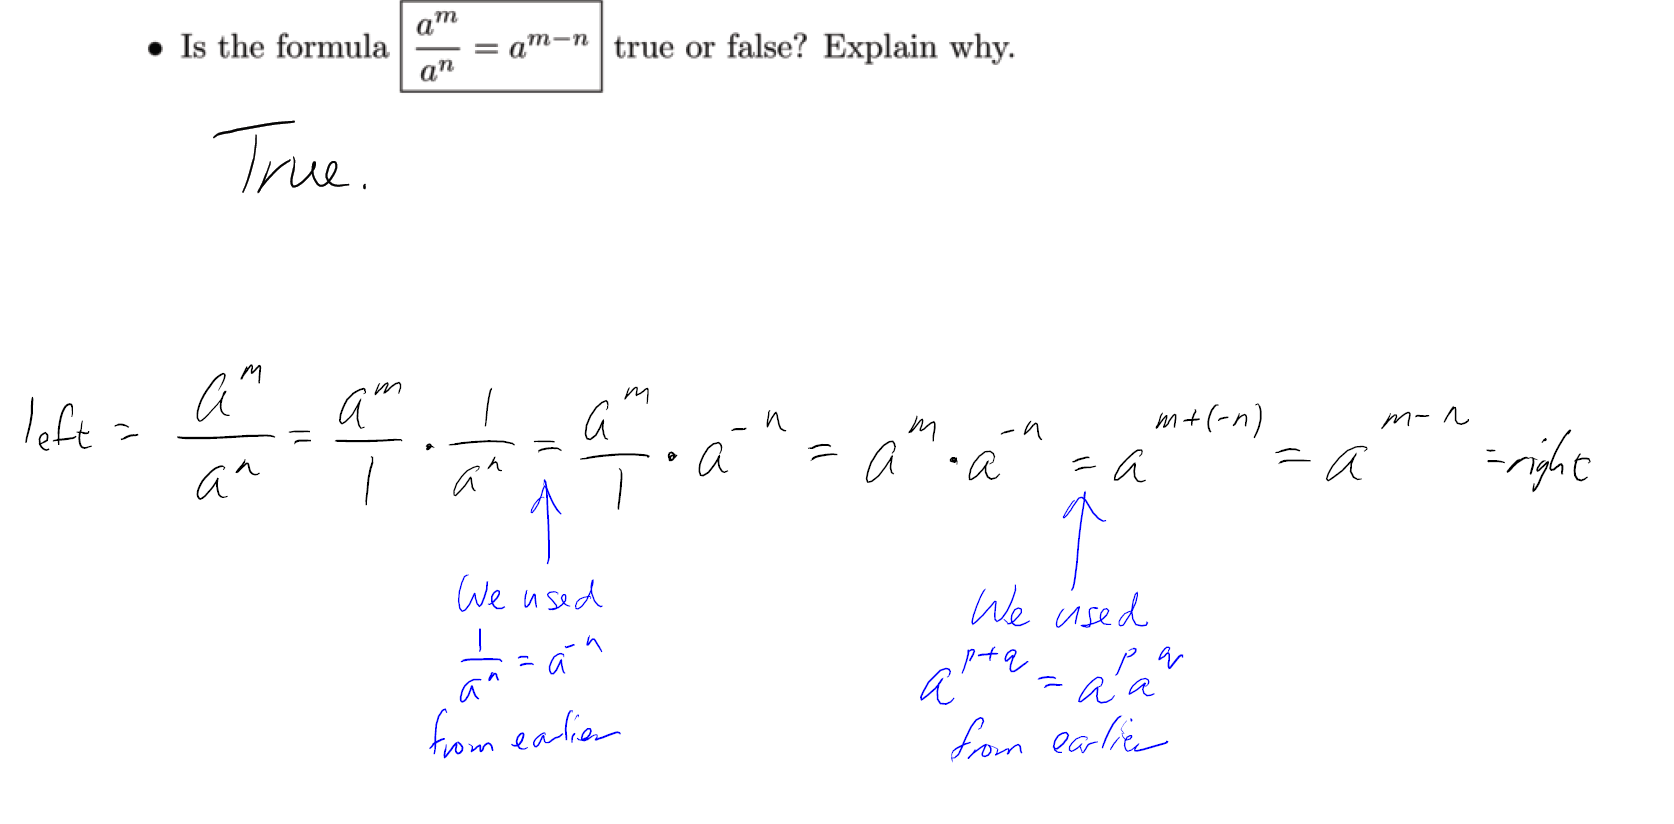 • Is the formula a^m/a^n = a^{m−n} true or false? Explain why.
True.
left = a^m/a^n = a^m/1 · 1/a^n = a^m/1 · a^{-n} = a^m · a^{-n} = a^{m+(-n)} = a^{m-n} = right
We used
1/a^n = a^{-n}
from earlier
We used
a^{p+q} = a^p a^q
from earlier